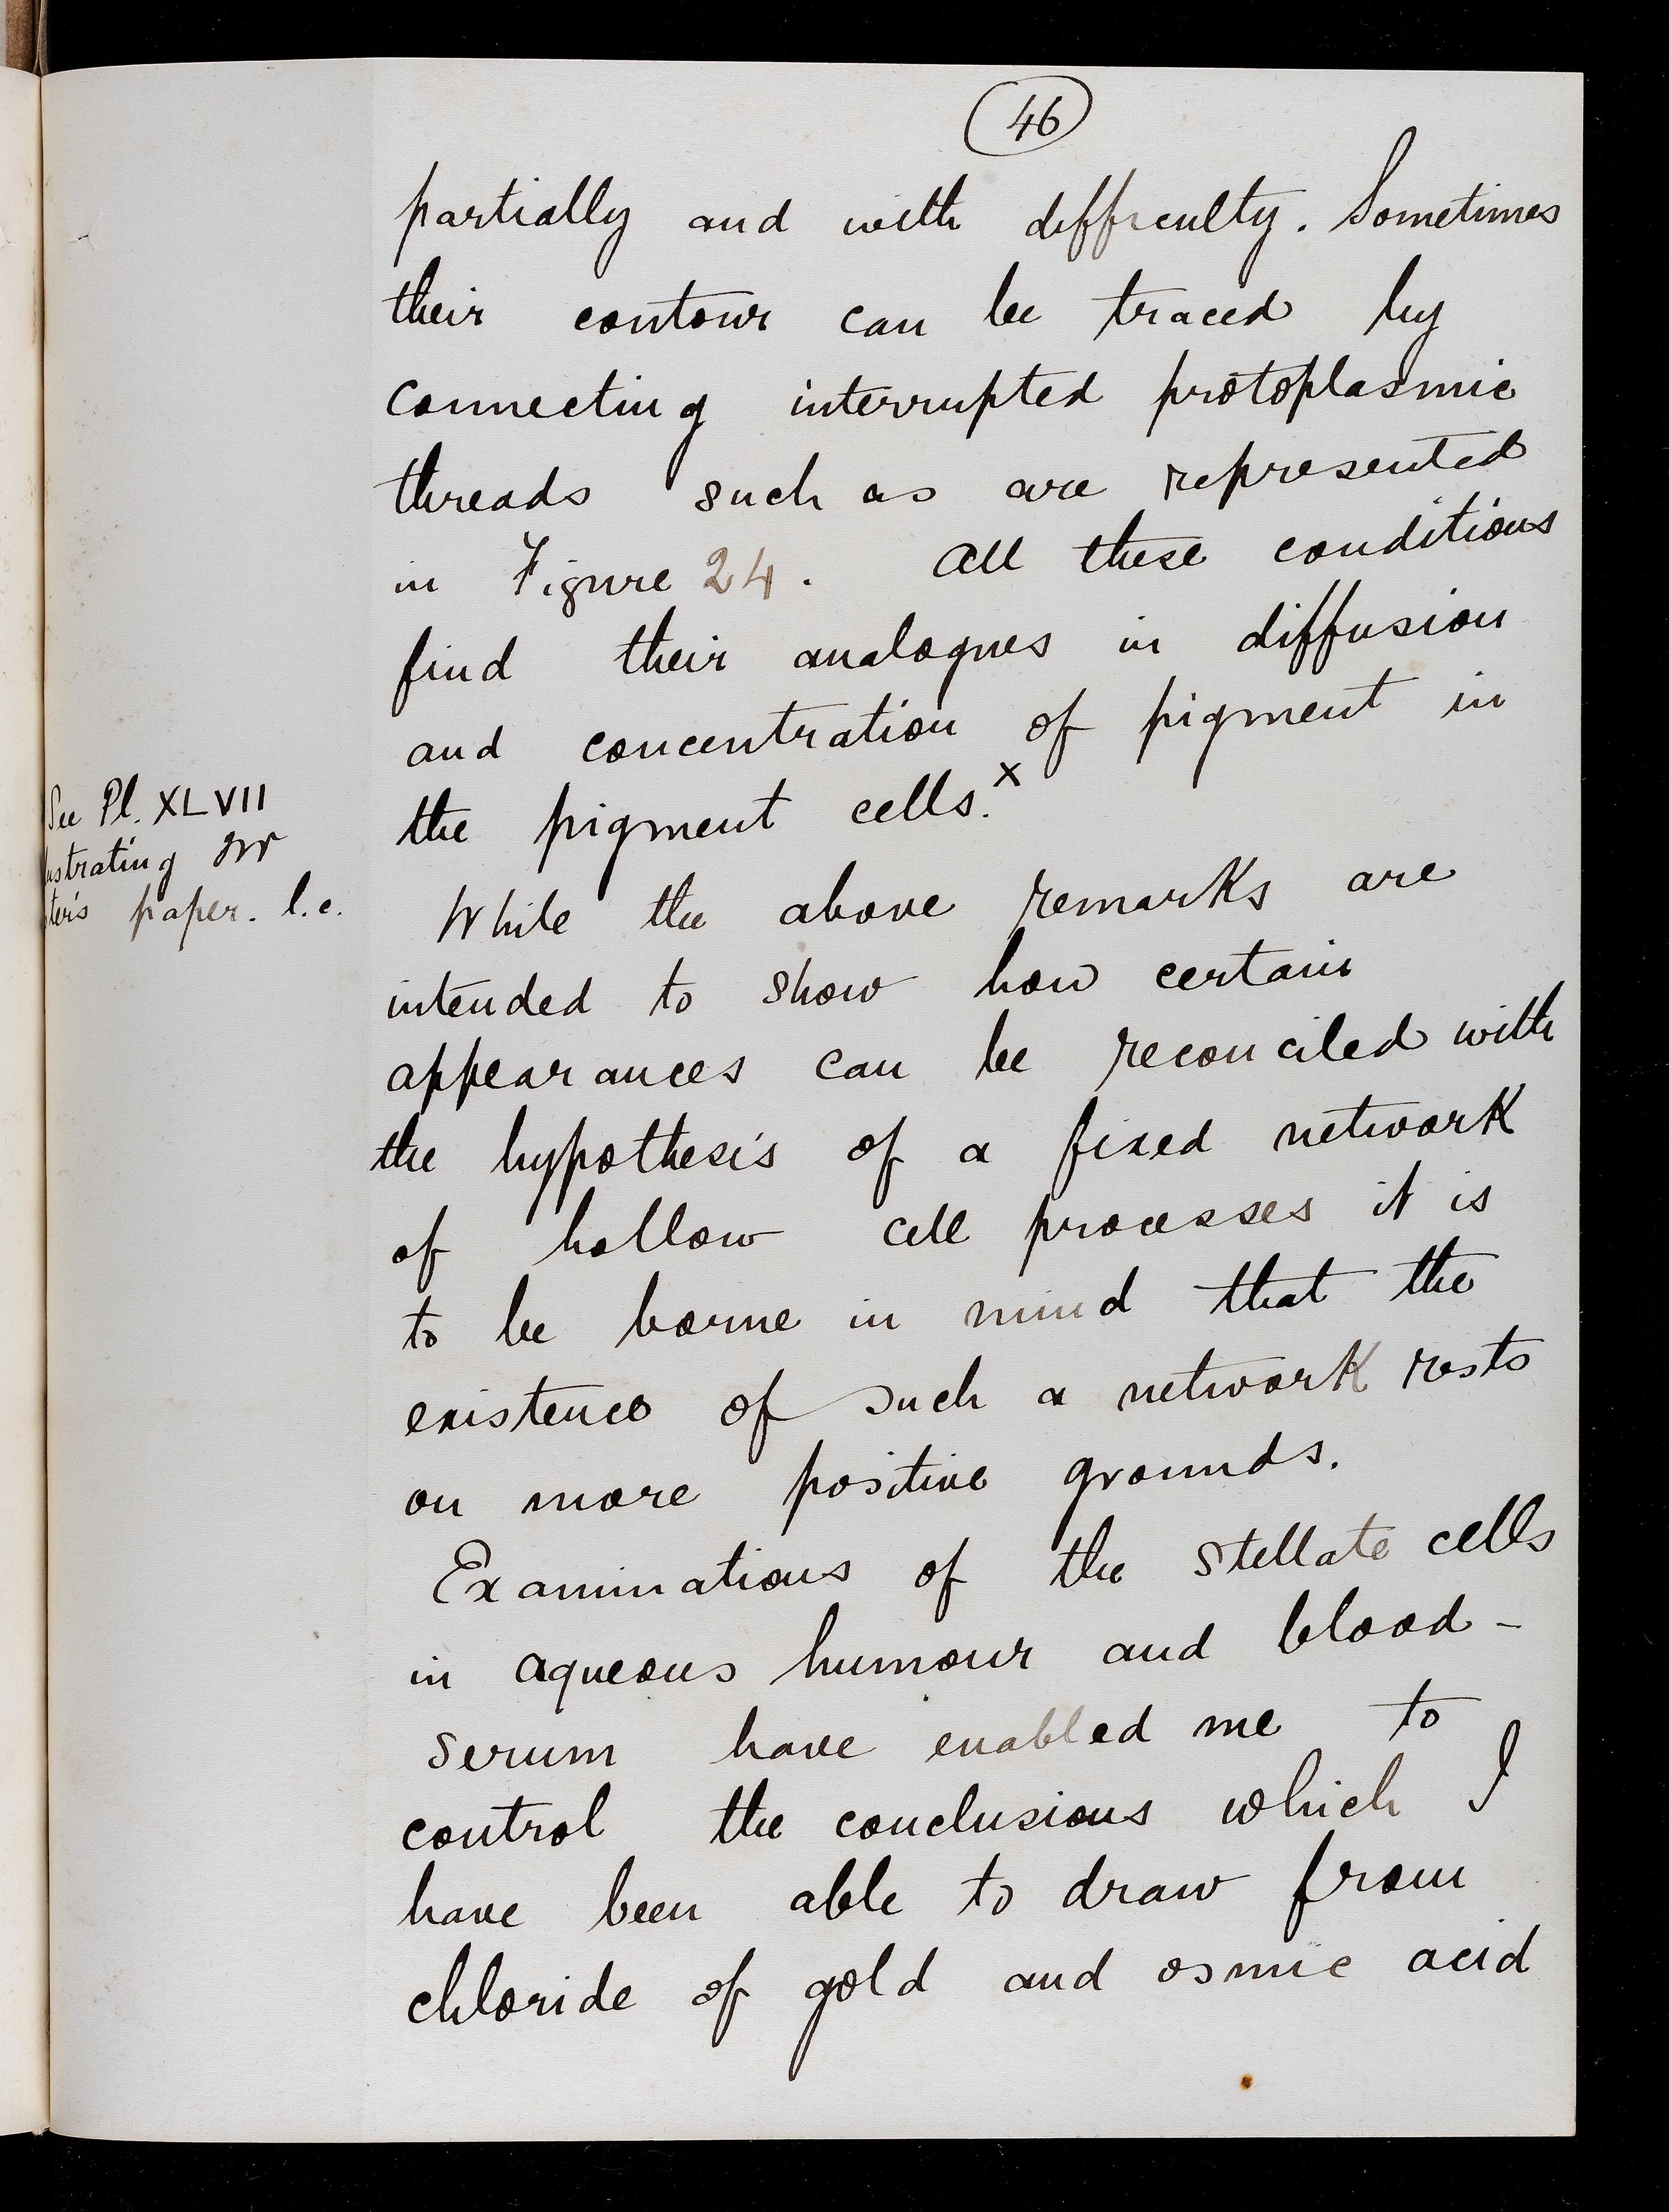 46
partially and with difficulty. Sometimes
their contour can be traced by
connecting interrupted protoplasmic
threads such as are represented
in Figure 24. All these conditions
find their analogues in diffusion
and concentration of pigment in
the pigment cells.x
See Pl. XLVII
ustrating Mr
ter's paper. l.c.
While the above remarks are
intended to show how certain
appearances can be reconciled with
the hypothesis of a fixed network
of hollow cell processes it is
to be borne in mind that the
existence of such a network rests
on more positive grounds.
Examinations of the stellate cells
in aqueous humour and blood-
serum have enabled me to
control the conclusions which I
have been able to draw from
chloride of gold and osmic acid